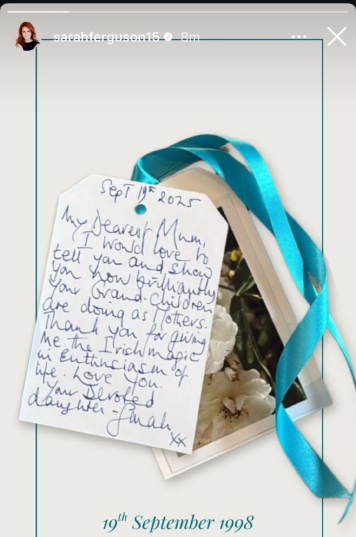 sarahferguson15 8m
Sept 19th 2025
My Dearest Mum,
I would love to
tell you and show
you how brilliantly
your Grand-Children
are doing as Mothers.
Thank you for giving
me the Irish magic
in Enthusiasm of
life. Love you.
Your devoted
daughter - Sarah
xx
19th September 1998